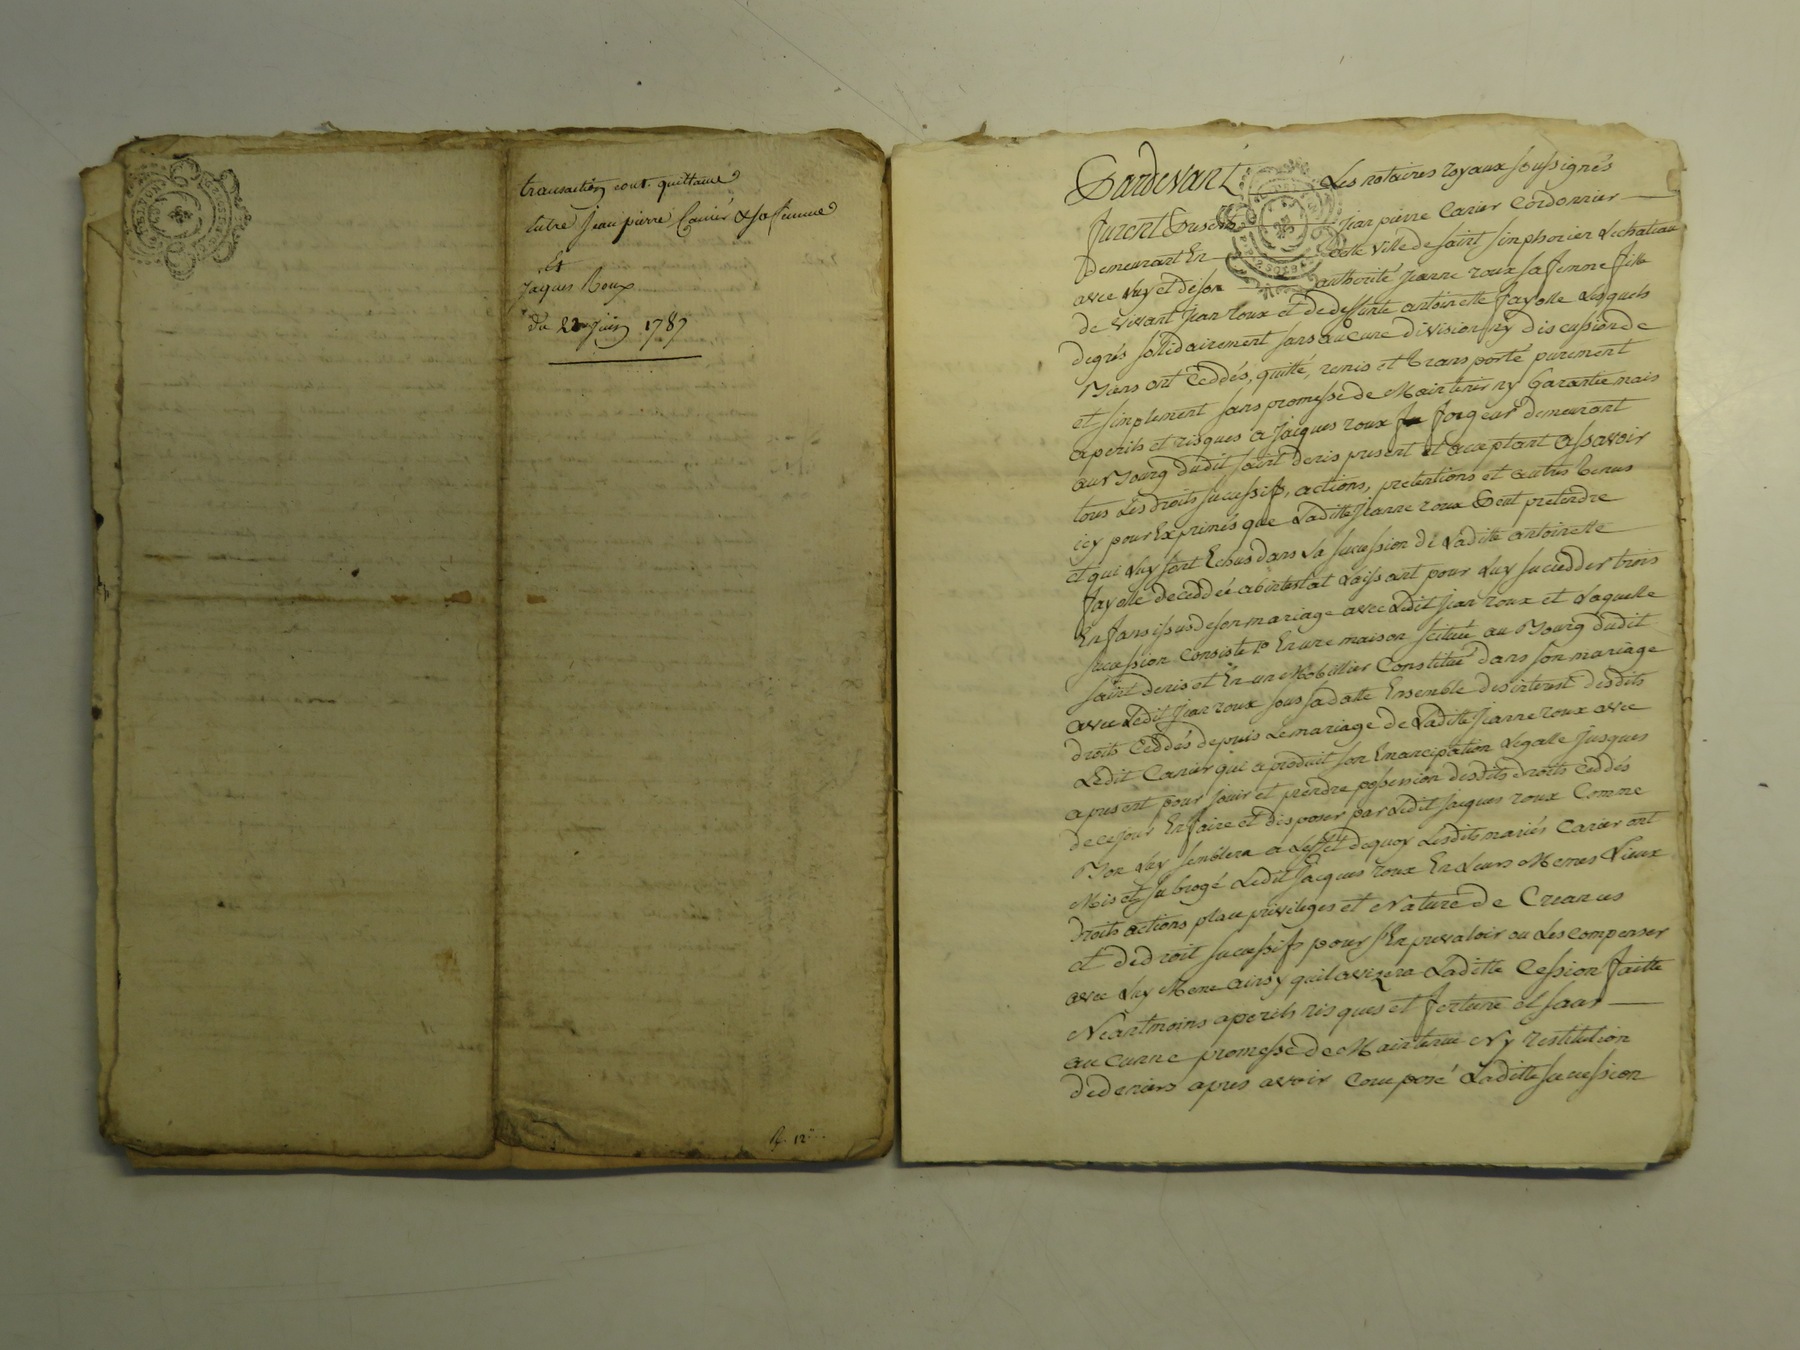 transaction cont. quittance
entre Jean pierre Carrier & sa femme
Et
Jaques Roux
du 22 Juin 1787
R. 12
Pardevant Les notaires royaux soussignés
furent Presents Jean pierre Carier Cordonnier
Demeurant En cette Ville de saint simphorien Lechateau
avec Luy et de son authorité Jeanne roux sa femme fille
de vivant Jean roux et de deffunte antoinette fayolle Lesquels
degrés sollidairement sans aucune division ny discussion de
Biens ont Ceddés, quitté, remis et transporté purement
et simplement sans promesse de Maintenir ny Garantie mais
a perils et risques a Jacques roux forgeur demeurant
au Bourg dudit saint denis present et acceptant assavoir
tous Les droits sucessifs, actions, pretentions et autres tenus
icy pour Exprimés que Laditte Jeanne roux Peut pretendre
et qui Luy sont Echus dans La sucession de Laditte antoinette
fayolle deceddée abintestat Laissant pour Luy succedder trois
Enfans issus de son mariage avec Ledit Jean roux et Laquelle
sucession Consiste 1º En une maison scituée au Bourg dudit
saint denis et En un Mobillier Constitué dans son mariage
avec Ledit Jean roux sous sa datte Ensemble des interest desdits
droits Ceddés depuis Le mariage de Laditte Jeanne roux avec
Ledit Carier qui a produit son Emancipation Legalle Jusques
a present pour jouir et prendre possession desdits droits Ceddés
de ce jour En faire et disposer par Ledit Jacques roux Comme
Bon Luy semblera a Leffet dequoy Lesdits mariés Carier ont
Mis et subrogé Ledit Jacques roux En Leurs Memes Lieux
droits actions place privileges et Nature de Creances
et de droit sucessifs pour s'En prevaloir ou Les compenser
avec Luy Meme ainsy quil avizera Laditte Cession faitte
Neantmoins a perils risques et fortune et sans
aucunne promesse de Maintenue Ny restitution
de deniers apres avoir Composé Laditte sucession